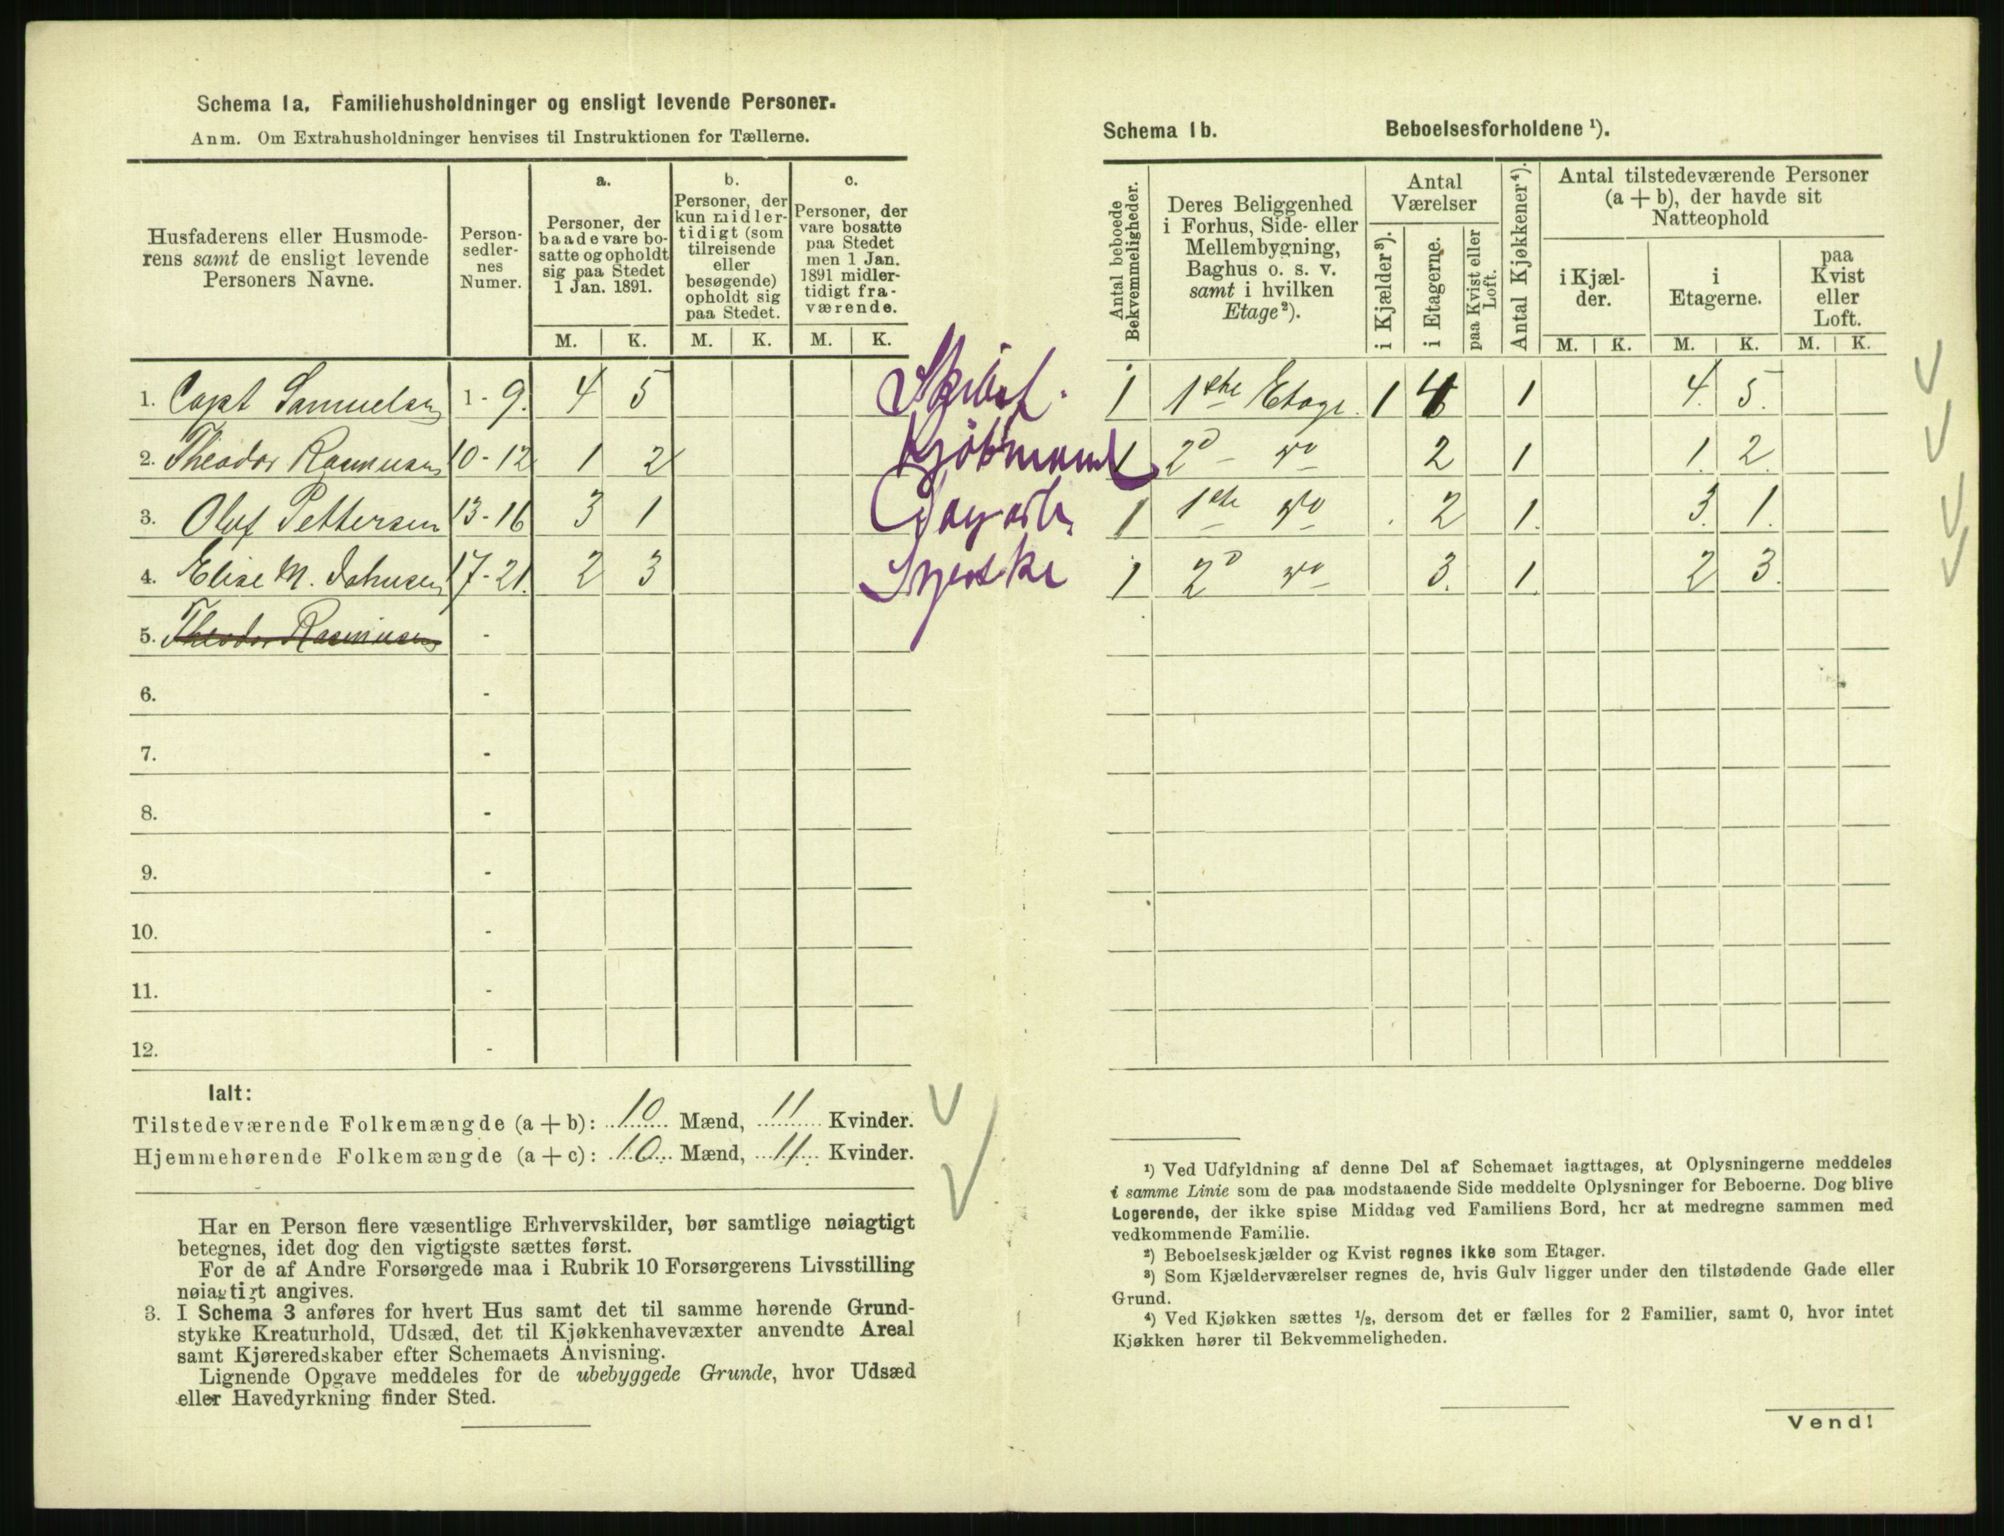 Schema 1a. Familiehusholdninger og ensligt levende Personer.
Anm. Om Extrahusholdninger henvises til Instruktionen for Tællerne.
Husfaderens eller Husmode-
rens samt de ensligt levende
Personers Navne.
Person-
sedler-
nes
Numer.
a.
Personer, der
baade vare bo-
satte og opholdt
sig paa Stedet
1 Jan. 1891.
b.
Personer, der
kun midler-
tidigt (som
tilreisende
eller
besøgende)
opholdt sig
paa Stedet.
c.
Personer, der
vare bosatte
paa Stedet
men 1 Jan.
1891 midler-
tidigt fra-
værende.
M. K. M. K. M. K.
1. Capt Samuelsen 1 - 9. 4 5
2. Theodor Rasmusen 10 - 12 1 2
3. Oluf Pettersen 13 - 16 3 1
4. Elise M. Johnsen 17 - 21. 2 3
5. Theodor Rasmusen -
6. -
7. -
8. -
9. -
10. -
11. -
12. -
Ialt:
Tilstedeværende Folkemængde (a + b): 10 Mænd, 11 Kvinder.
Hjemmehørende Folkemængde (a + c): 10 Mænd, 11 Kvinder.
Har en Person flere væsentlige Erhvervskilder, bør samtlige nøiagtigt
betegnes, idet dog den vigtigste sættes først.
For de af Andre Forsørgede maa i Rubrik 10 Forsørgerens Livsstilling
nøiagtigt angives.
3. I Schema 3 anføres for hvert Hus samt det til samme hørende Grund-
stykke Kreaturhold, Udsæd, det til Kjøkkenhavevæxter anvendte Areal
samt Kjøreredskaber efter Schemaets Anvisning.
Lignende Opgave meddeles for de ubebyggede Grunde, hvor Udsæd
eller Havedyrkning finder Sted.
Schema 1b. Beboelsesforholdene ¹).
Antal beboede
Bekvemmeligheder.
Deres Beliggenhed
i Forhus, Side- eller
Mellembygning,
Baghus o. s. v.
samt i hvilken
Etage²).
Antal
Værelser
i Kjælder³).
i Etagerne.
paa Kvist eller
Loft.
Antal Kjøkkener⁴).
Antal tilstedeværende Personer
(a + b), der havde sit
Natteophold
i Kjæl-
der.
i
Etagerne.
paa
Kvist
eller
Loft.
M. K. M. K. M. K.
1 1ste Etage. 1 4 1 4. 5.
Kjøbmand 1 2d do 2 1 1. 2.
1 1ste do 2 1. 3. 1.
1 2d do 3. 1. 2 3.
¹) Ved Udfyldning af denne Del af Schemaet iagttages, at Oplysningerne meddeles
i samme Linie som de paa modstaaende Side meddelte Oplysninger for Beboerne. Dog blive
Logerende, der ikke spise Middag ved Familiens Bord, her at medregne sammen med
vedkommende Familie.
²) Beboelseskjælder og Kvist regnes ikke som Etager.
³) Som Kjælderværelser regnes de, hvis Gulv ligger under den tilstødende Gade eller
Grund.
⁴) Ved Kjøkken sættes ½, dersom det er fælles for 2 Familier, samt 0, hvor intet
Kjøkken hører til Bekvemmeligheden.
Vend!